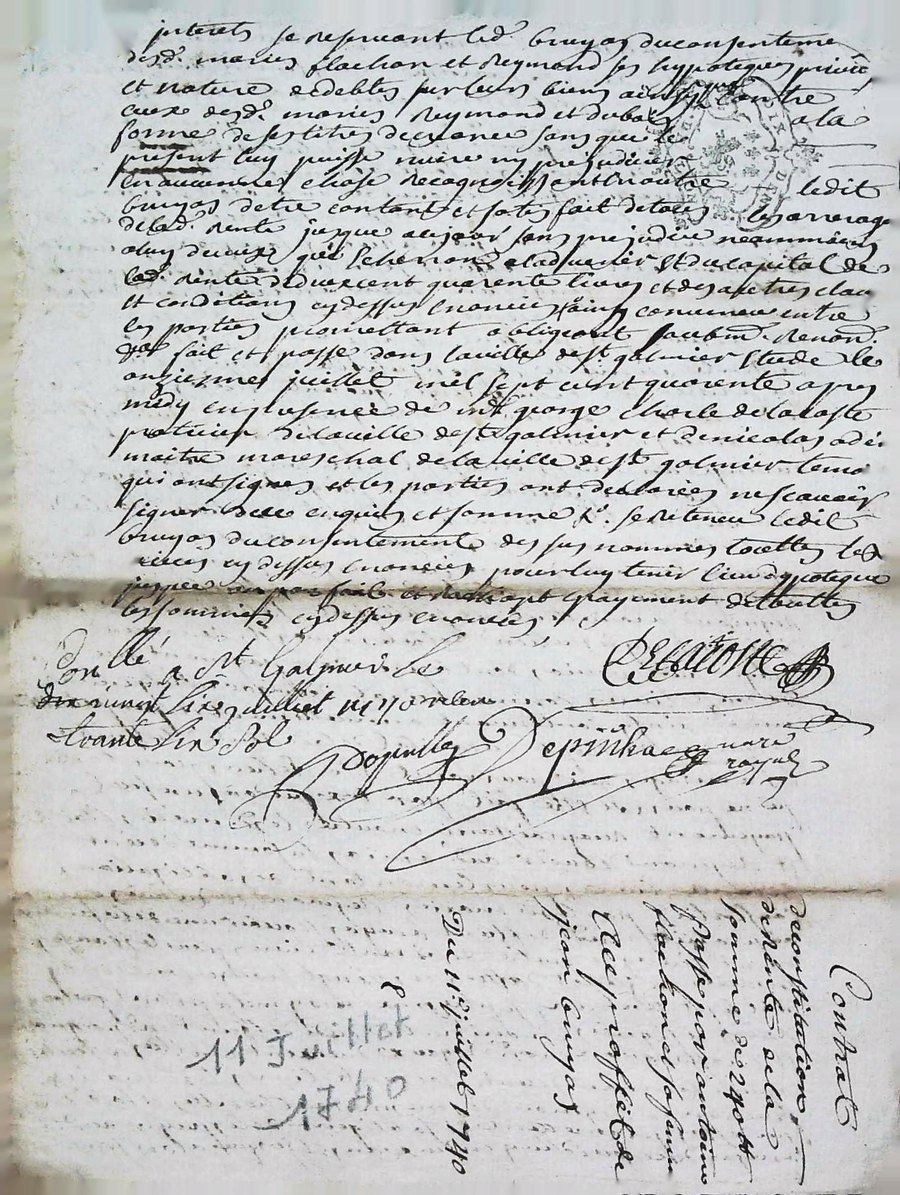 interets se reservant led. bruyas du consenteme
desd. maries flachon et Reymond ses hypoteques privil
et nature de debtes sur leurs biens ainsy que contre
ceux desd. maries Reymond et dubois a la
forme de ses titres de creance sans que le
present luy puisse nuire ny prejudicier
en aucunnes chose Recognoissent en outre ledit
bruyas detre contant et satisfait de tous les arrerage
de lad. Rente jusque a ce jour sans prejudice neammoins
de ceux qui scherront a ladvenir et du capital de
lad. Rente de deux cent quarente livres et des autres clau
et conditions cy dessus enoncées ainsy convenu entre
les parties promettant obligeant soubm. Renon.
fait et passe dans la ville de st galmier Etude le
onziemme juillet mil sept cent quarente apres
midy en presence de mr george charle de lacoste
praticien de la ville de st galmier et de nicolas
maitre mareschal de la ville de st galmier temo
qui ont signes et les parties ont declarées ne scavoir
signer de ce enquis et somme se Retenu ledit
bruyas du consentement des sus nommes les
cy dessus enoncées pour luy tenir lieu dypoteque
jusque au parfait et payement de toutes
les sommes cy dessus enoncées
DELACOSTE
Conllé a St Galmier le
juillet 1740
trante six sol
Depinhac nore
royal
Contrat
de constitution
de Rente de la
somme de 240 tt
passe par antoine
flachon et sa femme
Au proffit de
jean bruyas
Du 11e juillet 1740
11 Juillet
1740